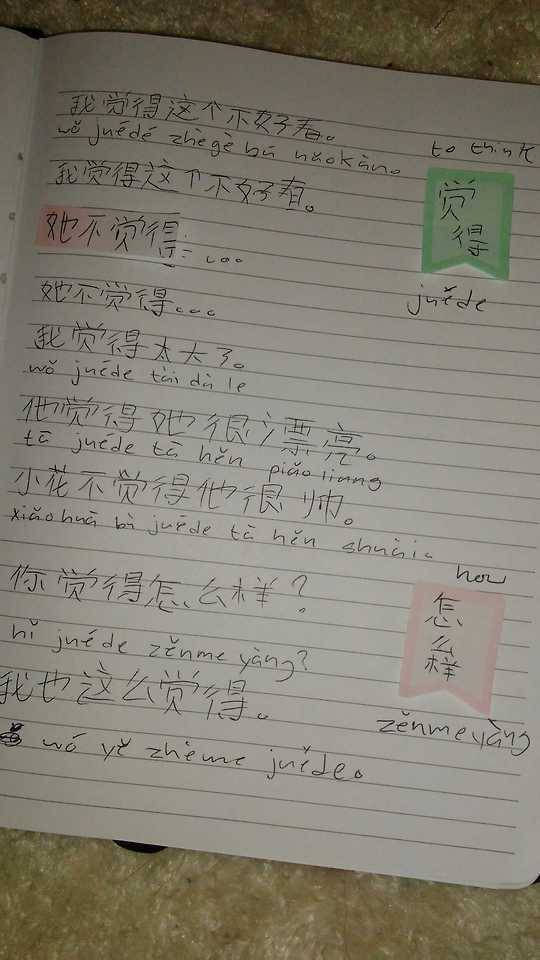 我觉得这个不好看。
wǒ juédé zhègè bù hǎokàn。
to think
我觉得这个不好看。
觉得
她不觉得...
juěde
她不觉得...
我觉得太大了。
wǒ juéde tài dà le
他觉得她很漂亮。
tā juéde tā hěn piāoliang
小花不觉得他很帅。
xiǎohuā bì juéde tā hěn shuài。
how
你觉得怎么样?
怎么样
nǐ juéde zěnmeyàng?
我也这么觉得。
zěnmeyàng
wó yě zhème juěde。